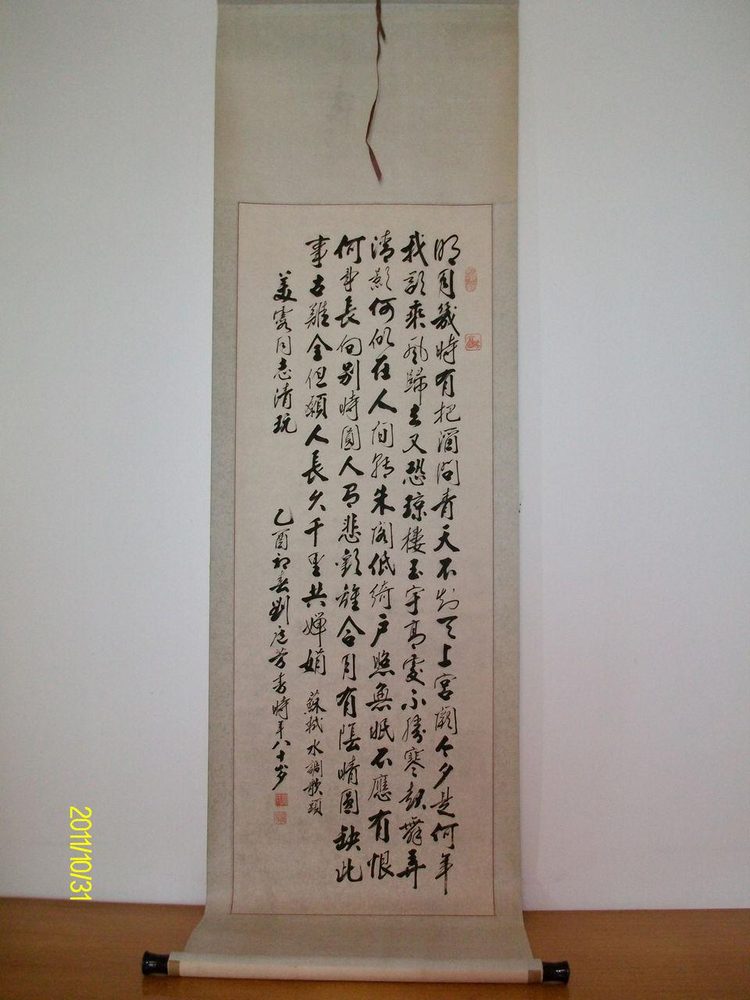 明月幾時有把酒問青天不知天上宮闕今夕是何年
我欲乘風歸去又恐瓊樓玉宇高處不勝寒起舞弄
清影何似在人間轉朱閣低綺戶照無眠不應有恨
何事長向別時圓人有悲歡離合月有陰晴圓缺此
事古難全但願人長久千里共嬋娟
蘇軾水調歌頭
美霞同志清玩
乙酉初春劉廷芳書時年八十岁
2011/10/31